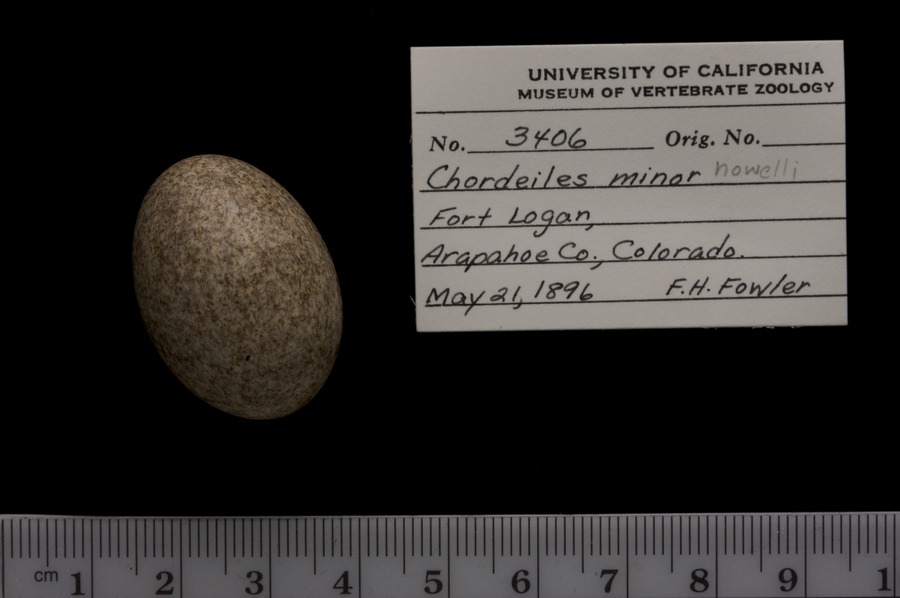 UNIVERSITY OF CALIFORNIA
MUSEUM OF VERTEBRATE ZOOLOGY
No. 3406 Orig. No.
Chordeiles minor howelli
Fort Logan,
Arapahoe Co., Colorado.
May 21, 1896 F.H. Fowler
cm 1 2 3 4 5 6 7 8 9 1